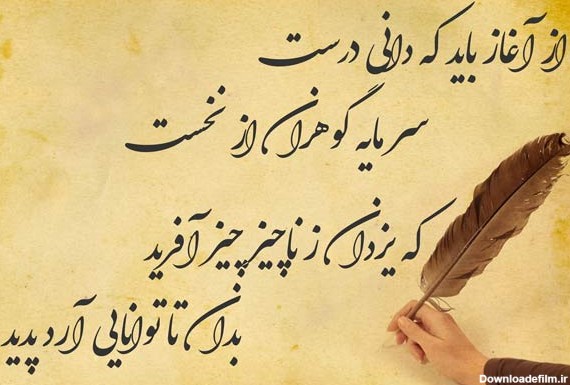 از آغاز باید که دانی درست
سرمایه گوهران از نخست
که یزدان ز ناچیز چیز آفرید
بدان تا توانایی آرد پدید
Downloadefilm.ir